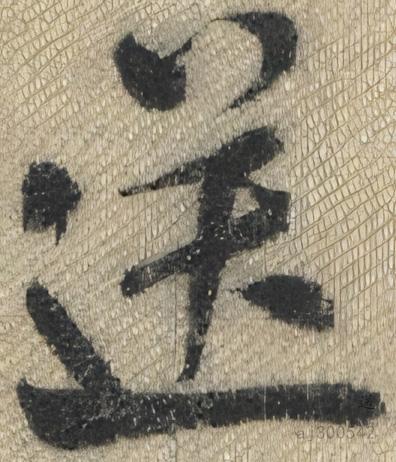 送
a_300542